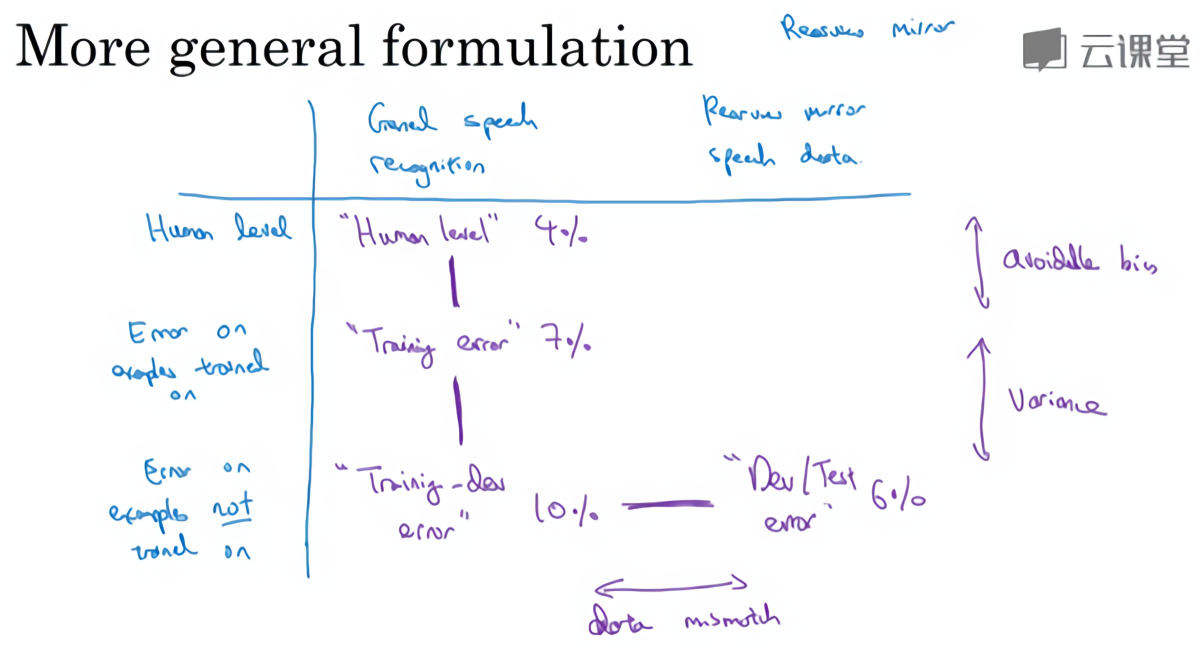 More general formulation
Rearview mirror
云课堂
General speech
recognition
Rearview mirror
speech data.
Human level
"Human level" 4%
avoidable bias
Error on
examples trained
on
"Training error" 7%
Variance
Error on
examples not
trained on
"Training-dev
error"
10%
"Dev/Test
error"
6%
data mismatch